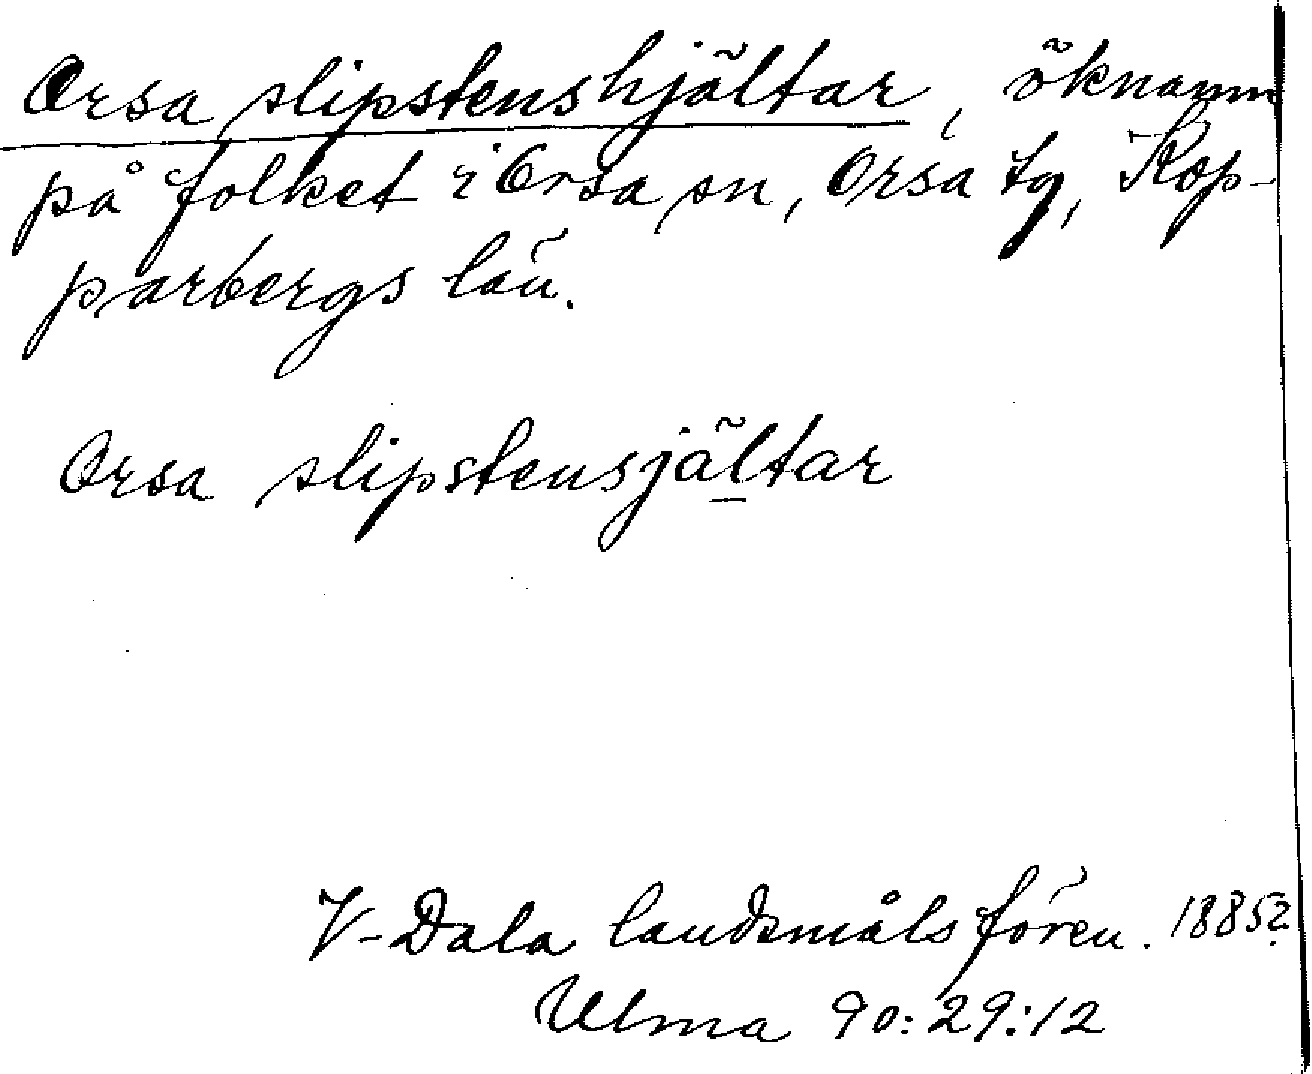 Orsa slipstenshjältar, öknamn
på folket i Orsa sn, Orsa tg, Kop-
parbergs län.
Orsa slipstensjältar
V-Dala landsmålsfören. 1885?
Ulma 90:29:12